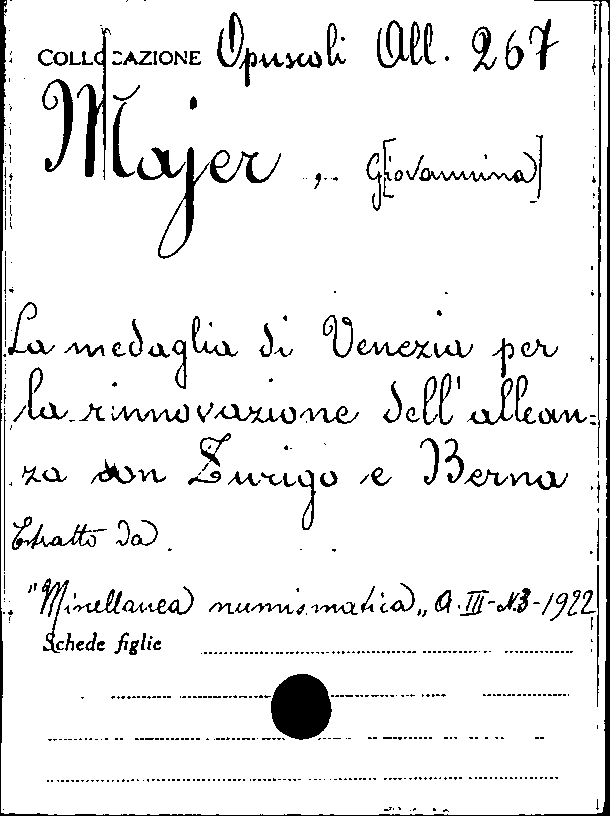 COLLOCAZIONE Opuscoli All. 267
Majer, G[iovannina]
La medaglia di Venezia per
la rinnovazione dell'allean=
za con Zurigo e Berna
Estratto da
"Miscellanea numismatica„ A. III - N.3 - 1922
Schede figlie